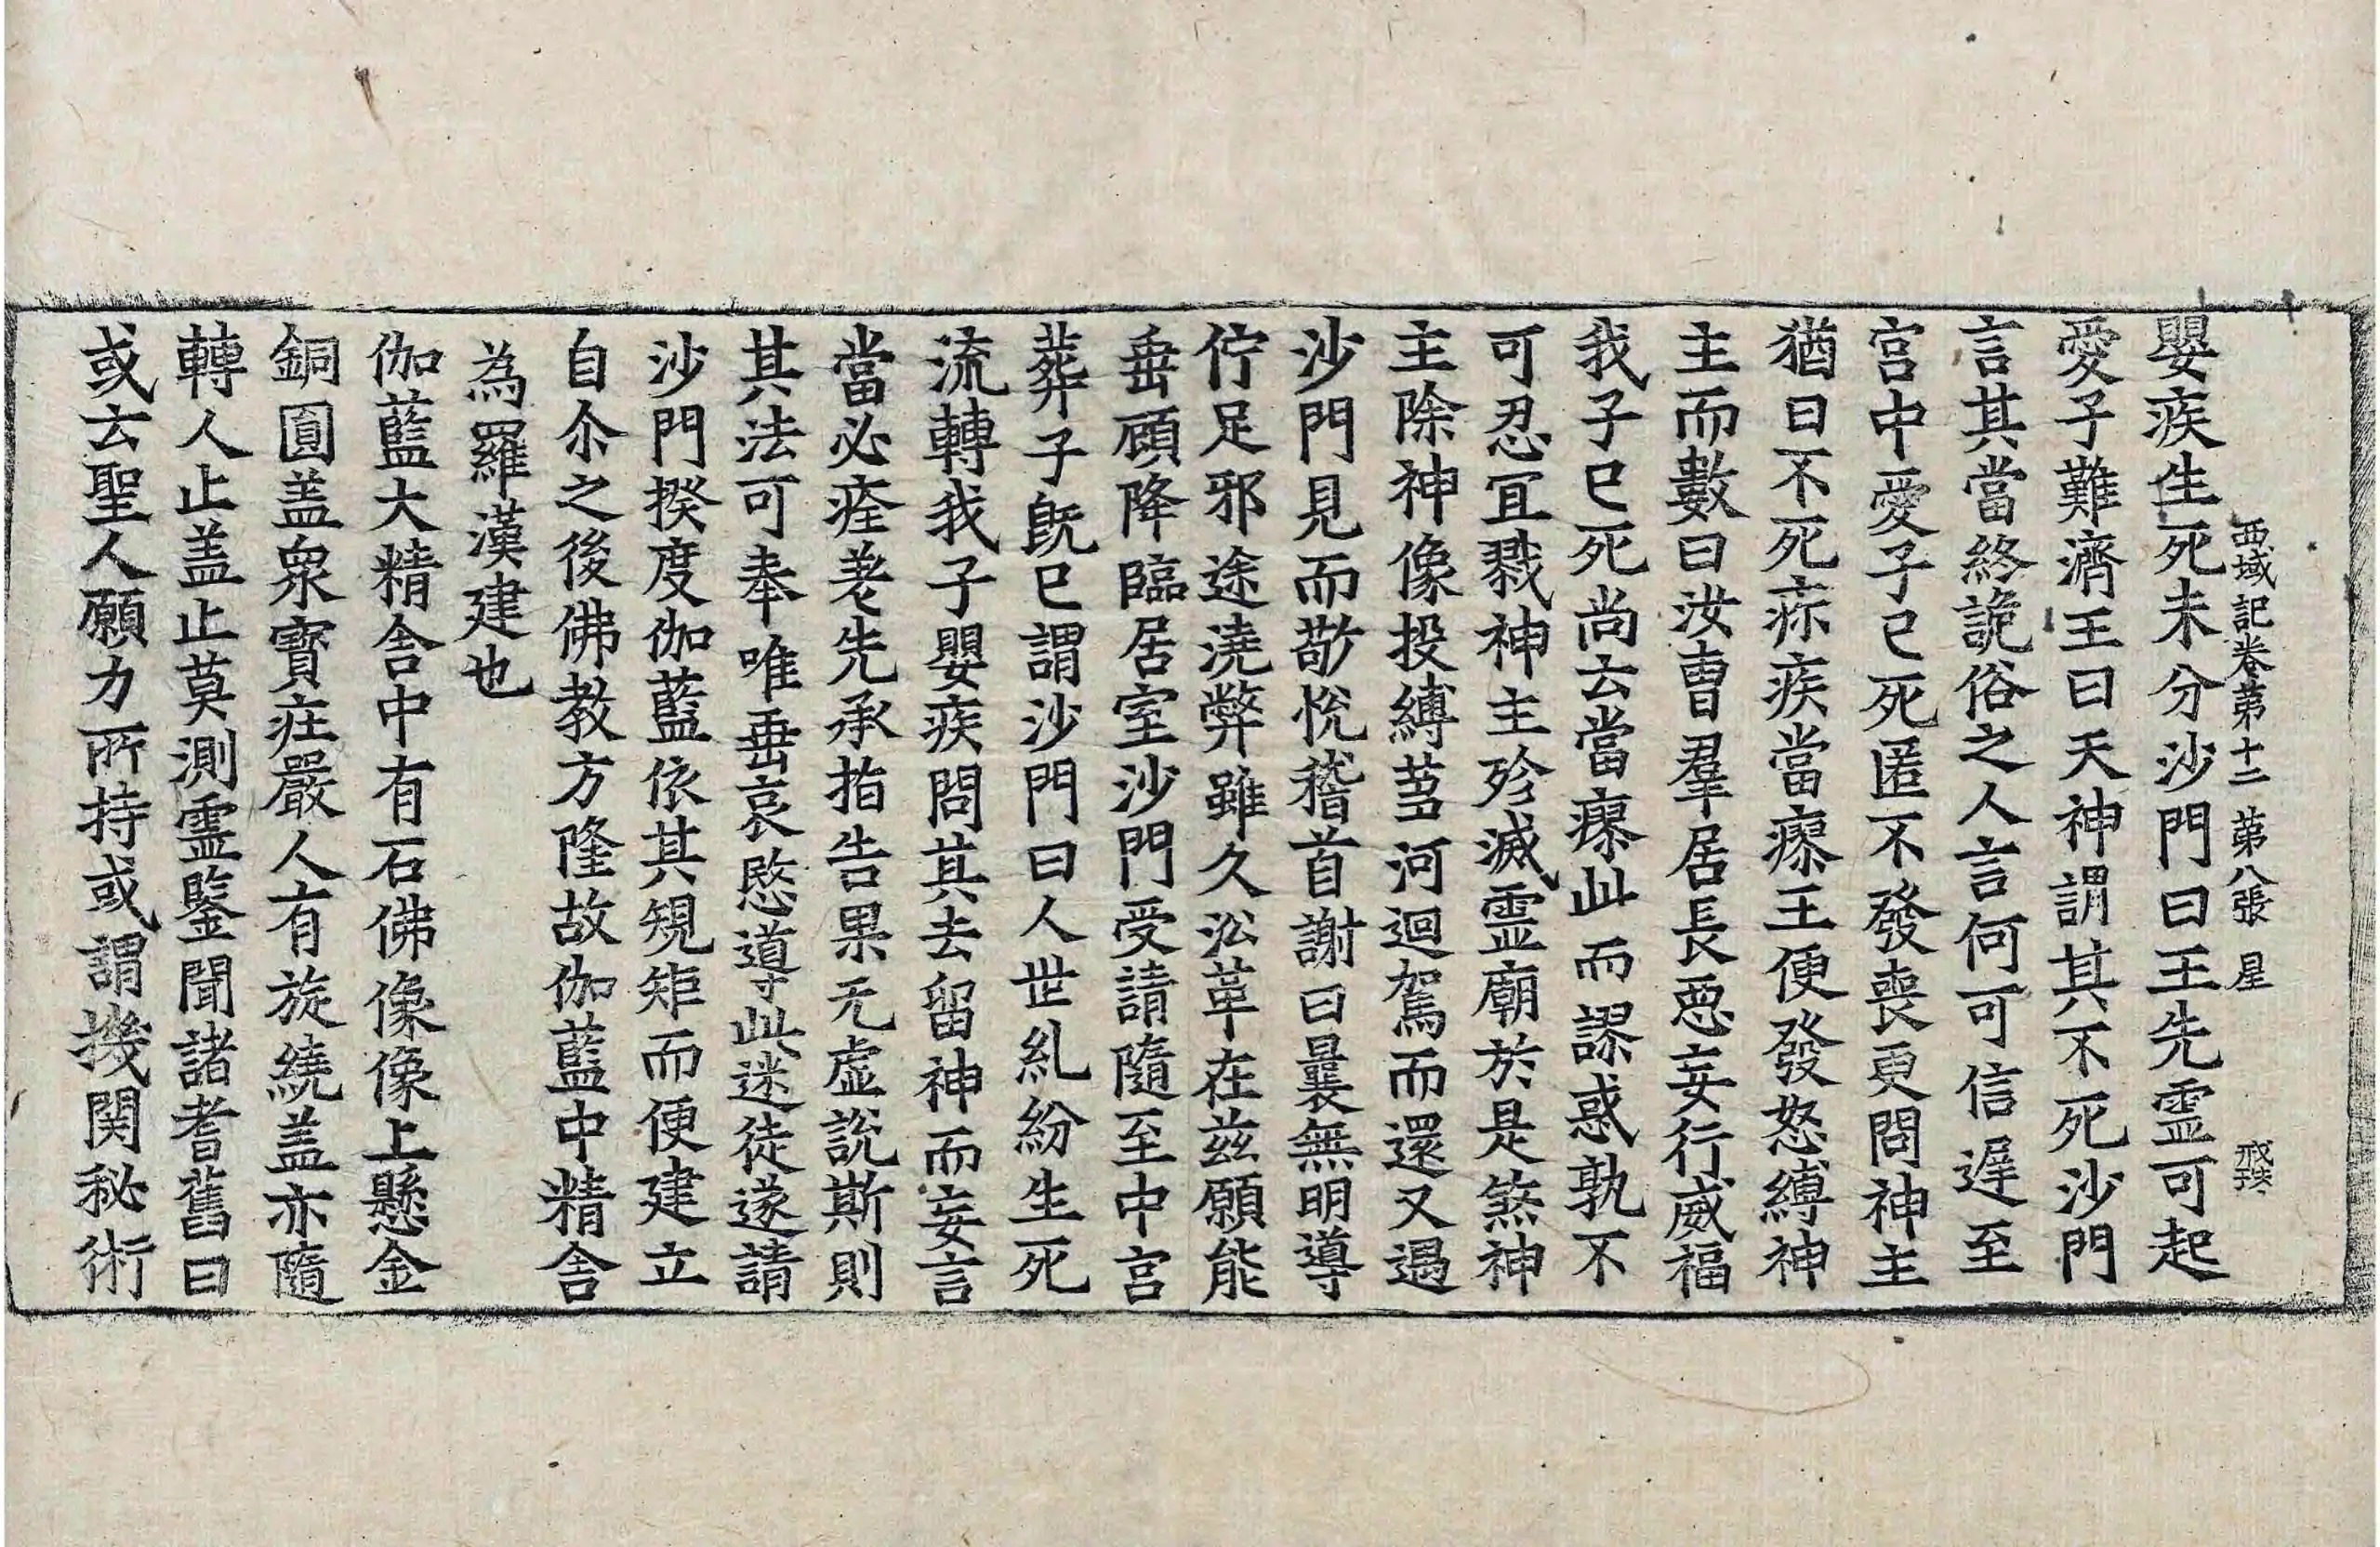 嬰疾生死未分沙門曰王先霊可起
西域記卷第十二 第八張 星
愛子難濟王曰天神謂其不死沙門
言其當終詭俗之人言何可信遅至
宮中愛子已死匿不發喪更問神主
猶曰不死疹疾當瘳王便發怒縛神
主而數曰汝曺羣居長惡妄行威福
我子已死尚云當瘳此而謬惑孰不
可忍冝戮神主殄滅霊廟於是煞神
主除神像投縛芻河迴駕而還又遇
沙門見而敬悅稽首謝曰曩無明導
佇足邪途澆弊雖久㳂革在茲願能
垂顧降臨居室沙門受請隨至中宮
葬子旣已謂沙門曰人世糺紛生死
流轉我子嬰疾問其去留神而妄言
當必痊差先承指告果无虛說斯則
其法可奉唯垂哀愍導此迷徒遂請
沙門揆度伽藍依其規矩而便建立
自尒之後佛教方隆故伽藍中精舎
為羅漢建也
伽藍大精舎中有石佛像像上懸金
銅圓盖衆寳莊嚴人有旋繞盖亦隨
轉人止盖止莫測霊鑒聞諸耆舊曰
或云聖人願力所持或謂機関秘術